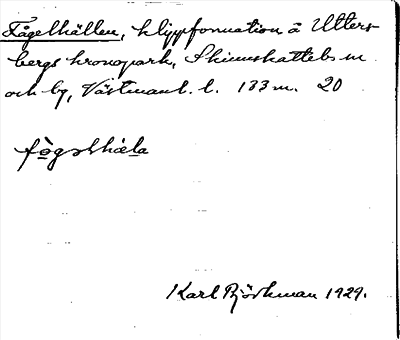 Fågelhällen, klippformation å Utters-
bergs kronopark, Skinnskattebs sn
och by, Västmanl. l. 133 m. 20
Karl Björkman 1929.